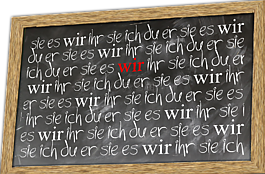 sie es wir ihr sie ich du er sie es wir
du er sie es wir ihr sie ich du er sie
sie ich du er sie es wir ihr sie ich du
wir ihr sie ich du er sie es wir ihr
er sie es wir ihr sie ich du er sie es
sie ich du er sie es wir ihr sie ich
es wir ihr sie ich du er sie es wir
sie ich du er sie es wir ihr sie ich